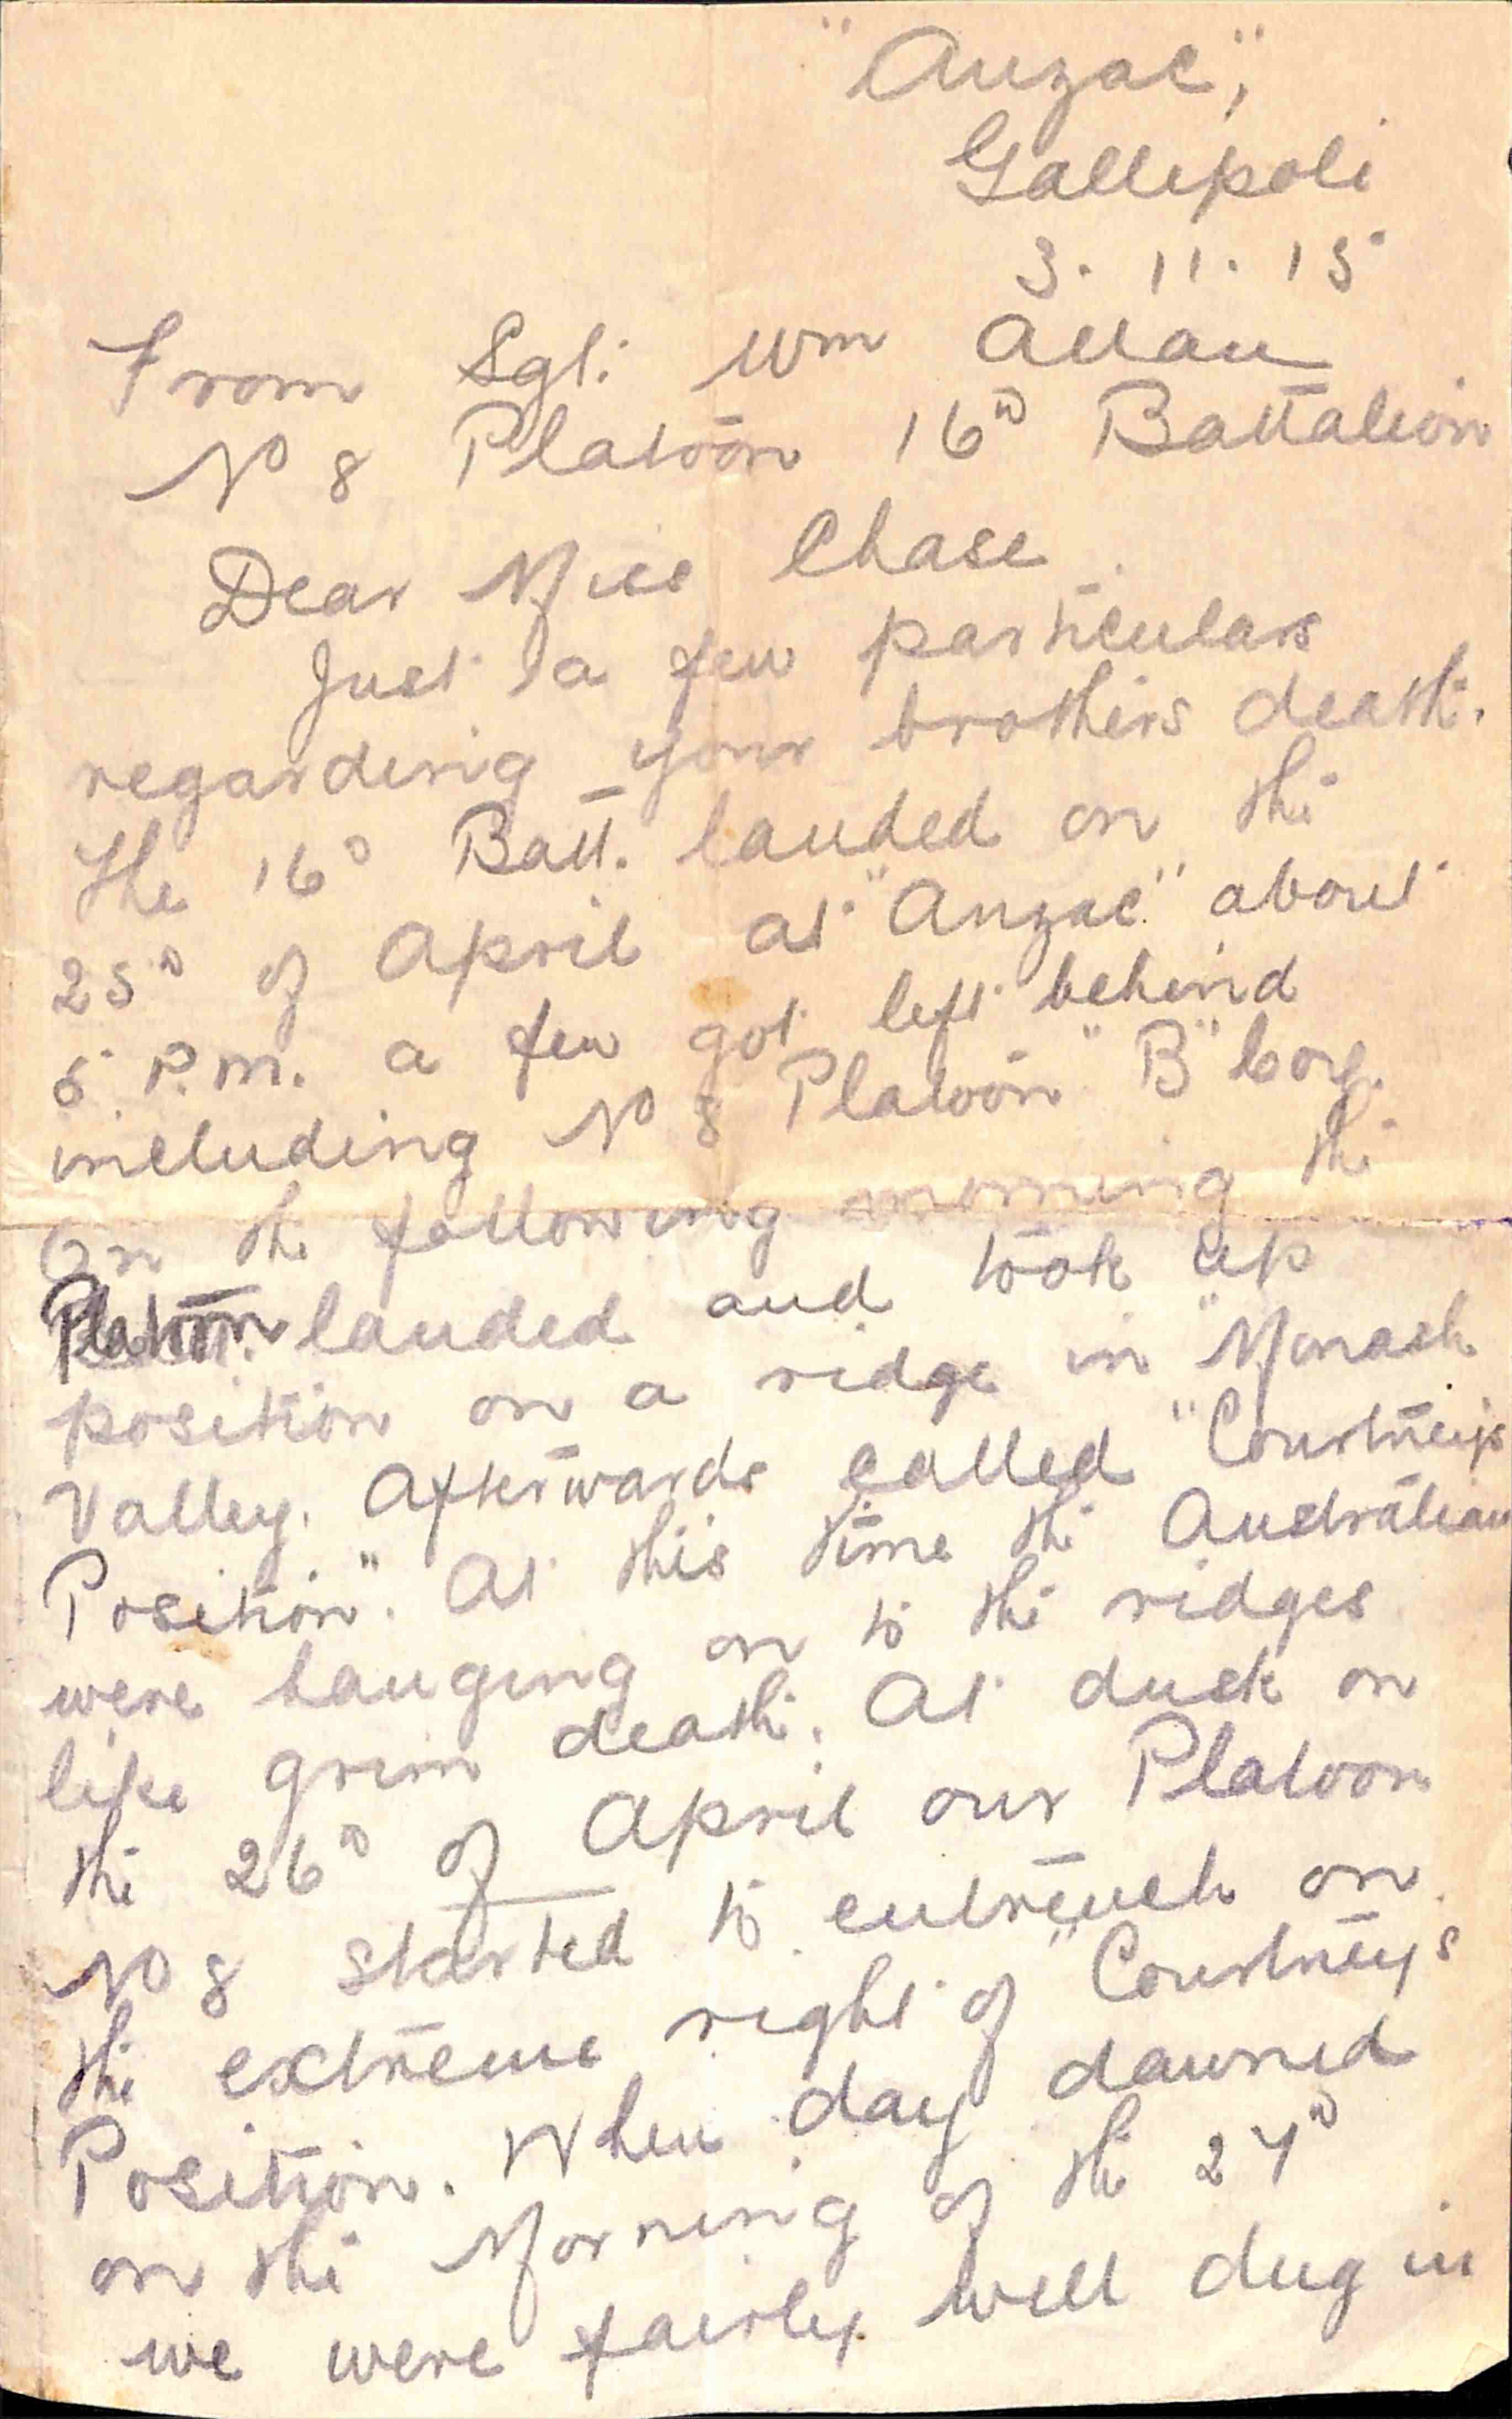 "Anzac",
Gallipoli
3. 11. 15
From Sgt. Wm Allan
No 8 Platoon 16th Battalion
Dear Miss Chase
Just a few particulars
regarding your brothers death.
The 16th Batt. landed on the
25th of April at "Anzac" about
5 P.M. a few got left behind
including No 8 Platoon "B" Coy.
On the following morning the
Platoon landed and took up
position on a ridge in "Monash
Valley. Afterwards called "Courtneys
Position". At this time the Australians
were hanging on to the ridges
like grim death. At dusk on
the 26th of April our Platoon
No 8 started to entrench on
the extreme right of "Courtneys
Position. When day dawned
on the Morning of the 27th
we were fairly well dug in